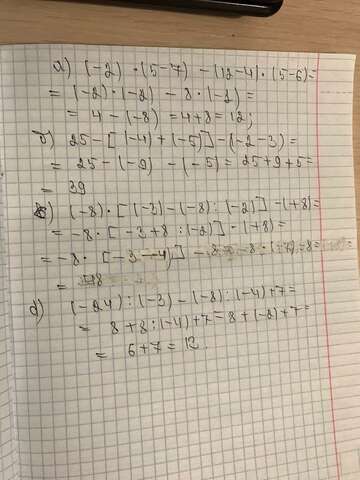 а) (-2) · (5-7) - (12-4) · (5-6) =
= (-2) · (-2) - 8 · (-1) =
= 4 - (-8) = 4+8 = 12;
б) 25 - [(-4) + (-5)] - (-2-3) =
= 25 - (-9) - (-5) = 25+9+5 =
= 39
в) (-8) · [(-3) - (-8) : (-2)] - (+8) =
= -8 · [-3+8 : (-2)] - (+8) =
= -8 · [-3-4)]
=
d) (-24) : (-3) - (-8) : (-4) + 7 =
= 8+8 : (-4) + 7 = 8 + (-2) + 7 =
= 6+7 = 13